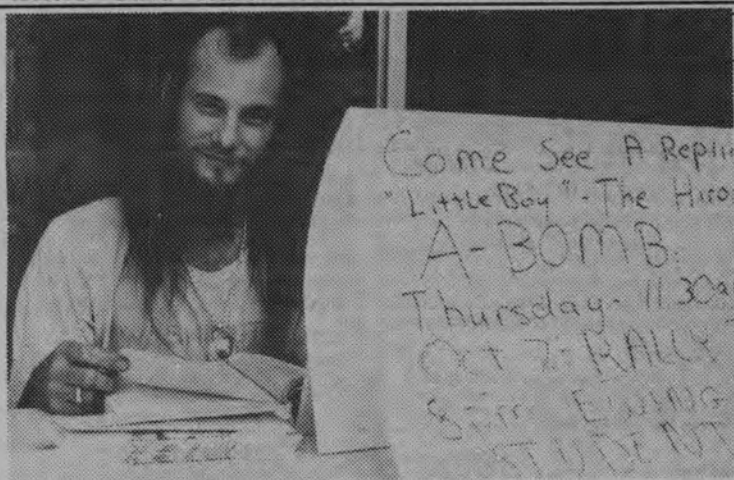 Come See A Repli
"Little Boy" - The Hiro
A-BOMB.
Thursday - 11:30a
Oct 7 - RALLY
8pm EWING
STUDENT